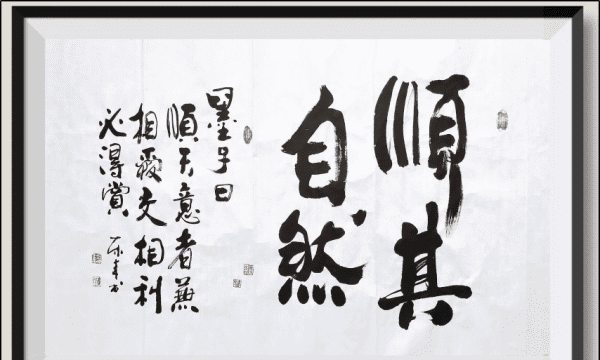 順其
自然
墨子曰
順天意者兼
相愛交相利
必得賞